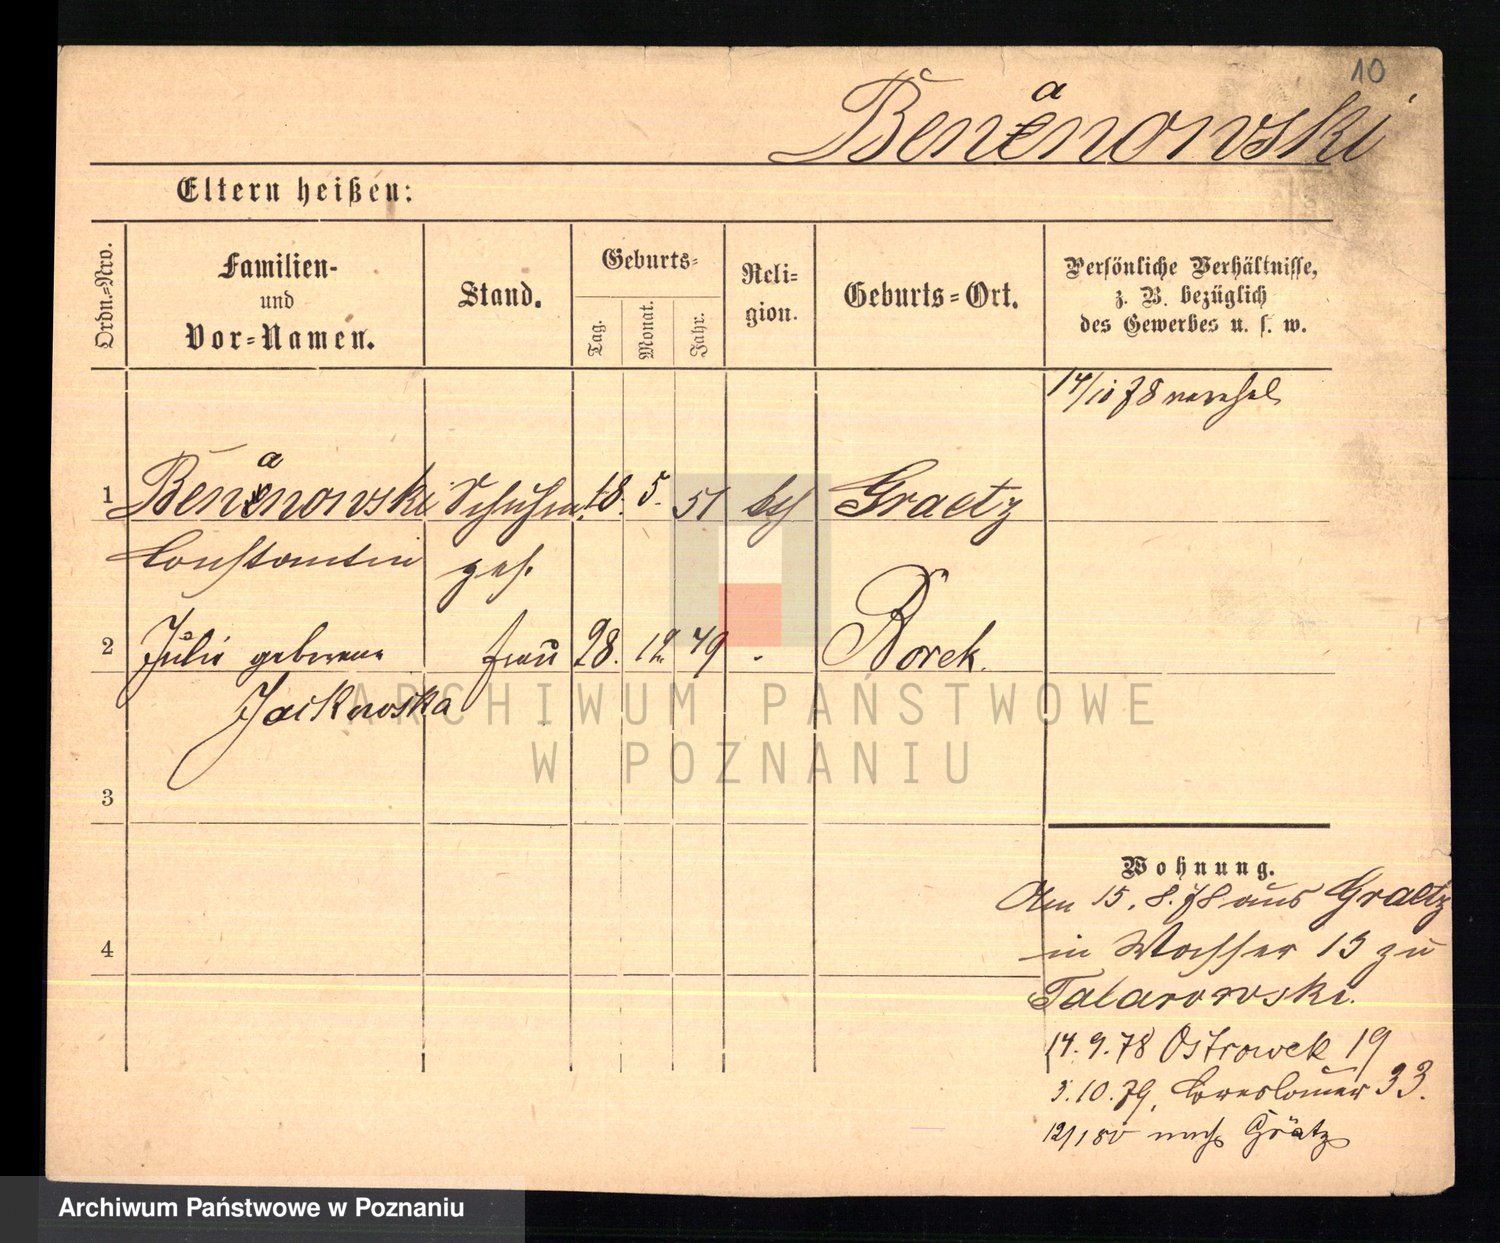 10
Benanowski
Eltern heißen:
Ordn.-Nro.
Familien-
und
Vor-Namen.
Stand.
Geburts-
Tag.
Monat.
Jahr.
Reli-
gion.
Geburts-Ort.
Persönliche Verhältnisse,
z. B. bezüglich
des Gewerbes u. s. w.
14/10 78
1 Benanowski Schuhm. 18. 5. 51 kth Graetz
Constantin ges.
2 Julie geborene frau 28. 12. 49 - Borek.
Jackowska
3
4
Wohnung.
Am 15. 8. 78 aus Graetz
in Wasser 13 zu
Talarowski.
14. 9. 78 Ostrowek 19
3. 10. 79, 33.
12/1 80 nach Grätz
ARCHIWUM PAŃSTWOWE
W POZNANIU
Archiwum Państwowe w Poznaniu